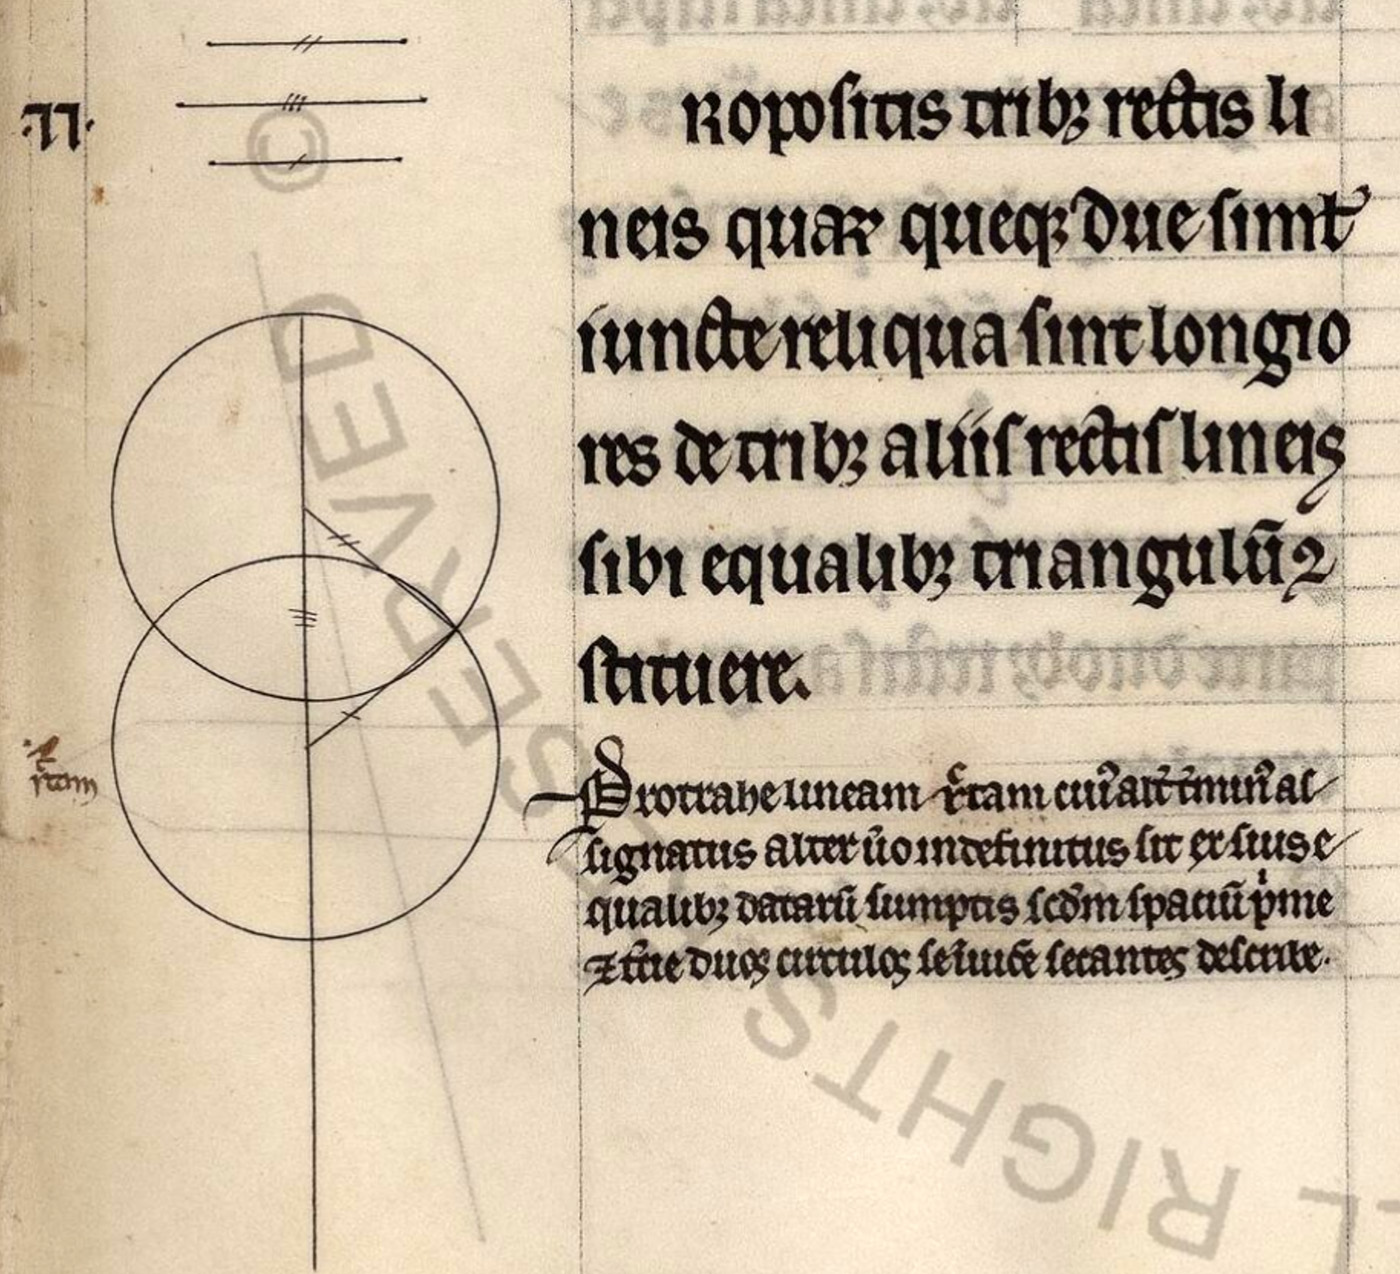 .22.
Ropositis tribꝫ rectis li
neis quaꝝ queqꝫ due simĺ
iuncte reliqua sint longio
res de tribꝫ aliis rectis lineis
sibi equalibꝫ triangulū ꝯ
stituere.
Protrahe lineam rͨtam cuiꝰ alt̄ t̄minꝰ as
signatus alter ūo indefinitus sit ex siuse
qualibꝫ datarū sumptis scd̄m spatiū pͥme
⁊ t̄cie duos circulos se īuicē secantes describe.
rctam
© ALL RIGHTS RESERVED